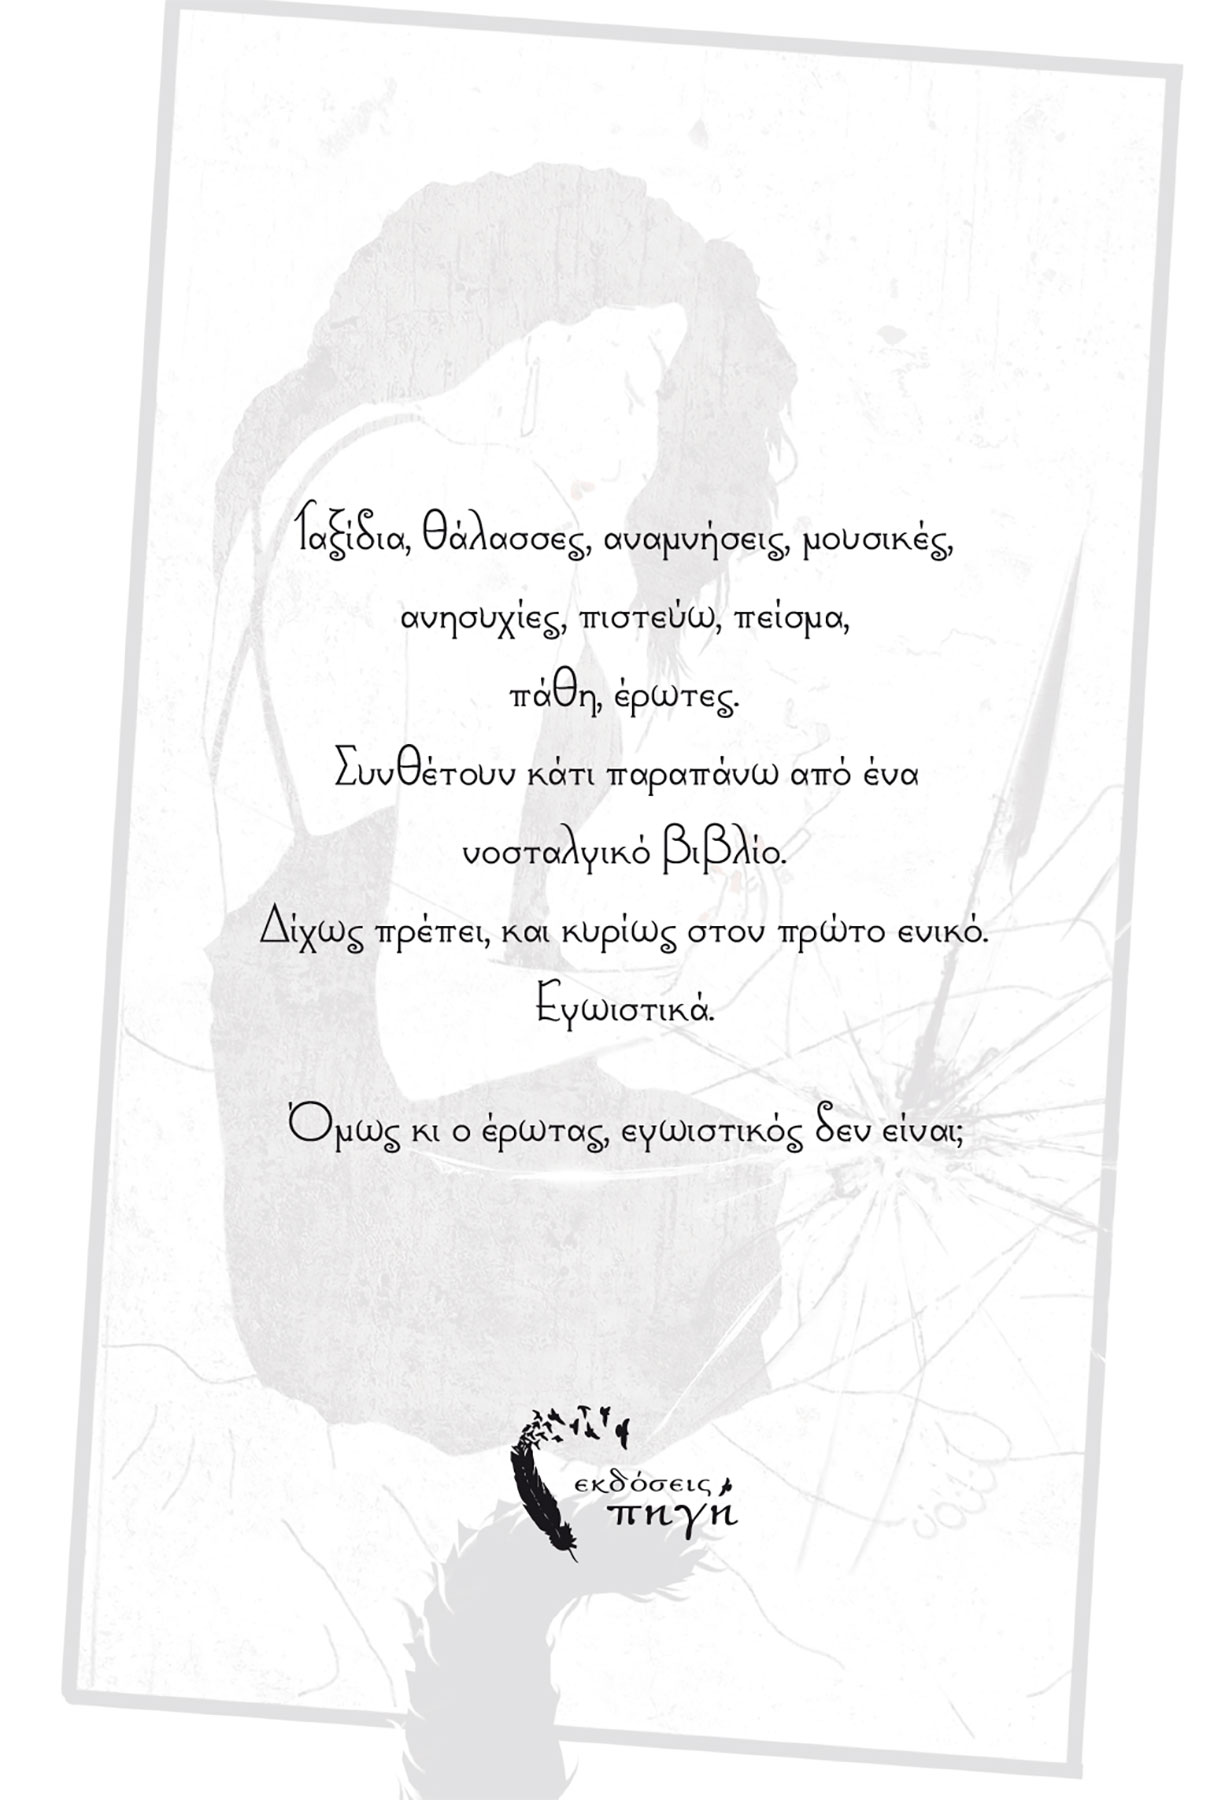 Ταξίδια, θάλασσες, αναμνήσεις, μουσικές,
ανησυχίες, πιστεύω, πείσμα,
πάθη, έρωτες.
Συνθέτουν κάτι παραπάνω από ένα
νοσταλγικό βιβλίο.
Δίχως πρέπει, και κυρίως στον πρώτο ενικό.
Εγωιστικά.
Όμως κι ο έρωτας, εγωιστικός δεν είναι;
εκδόσεις
πηγή